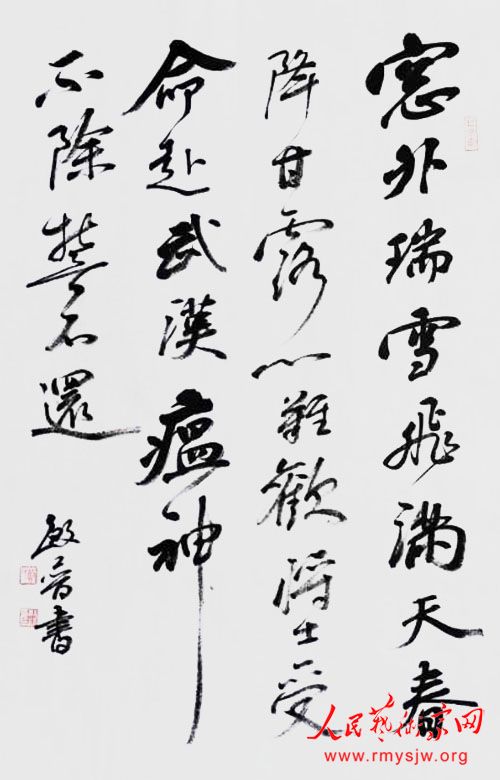 窓外瑞雪飛滿天春
降甘露心難歡將士受
命赴武漢瘟神
不除誓不還
書
人民藝術家网
www.rmysjw.org